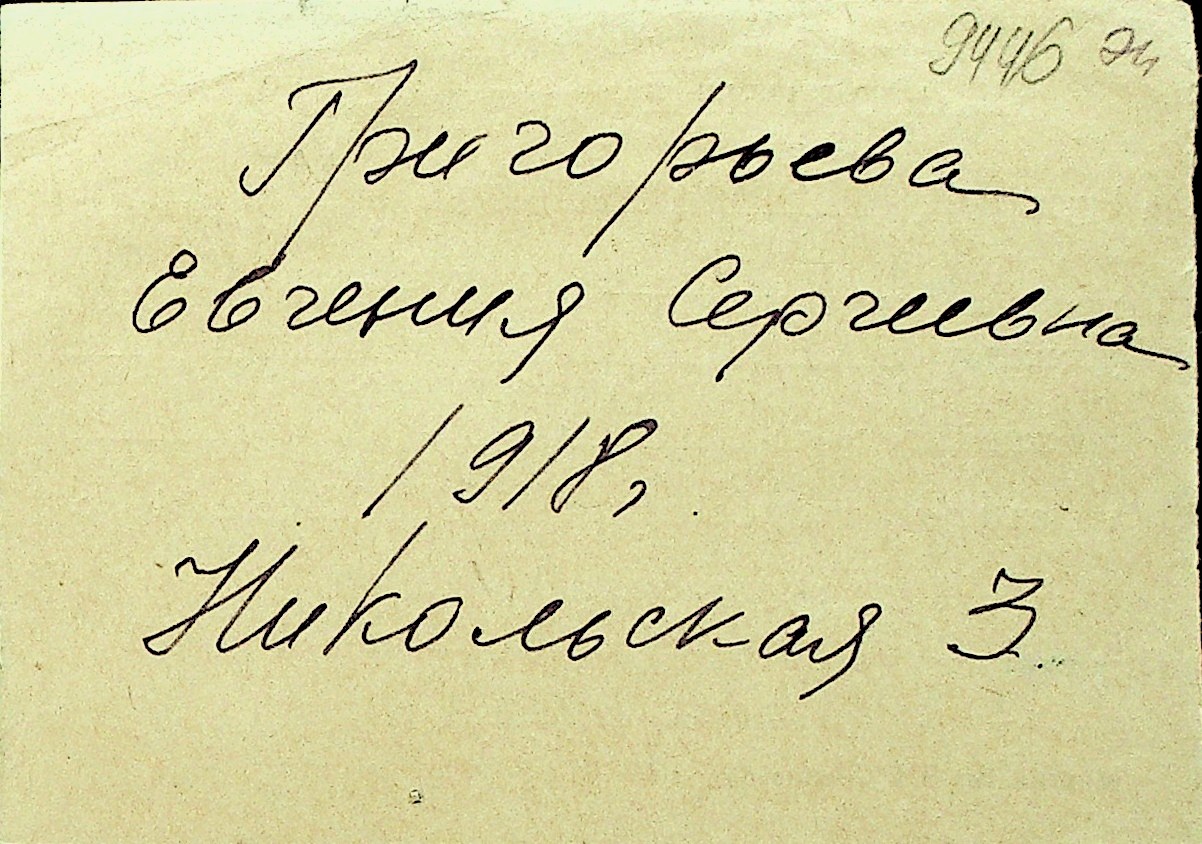 9446 эч
Григорьева
Евгения Сергеевна
1918,
Никольская 3